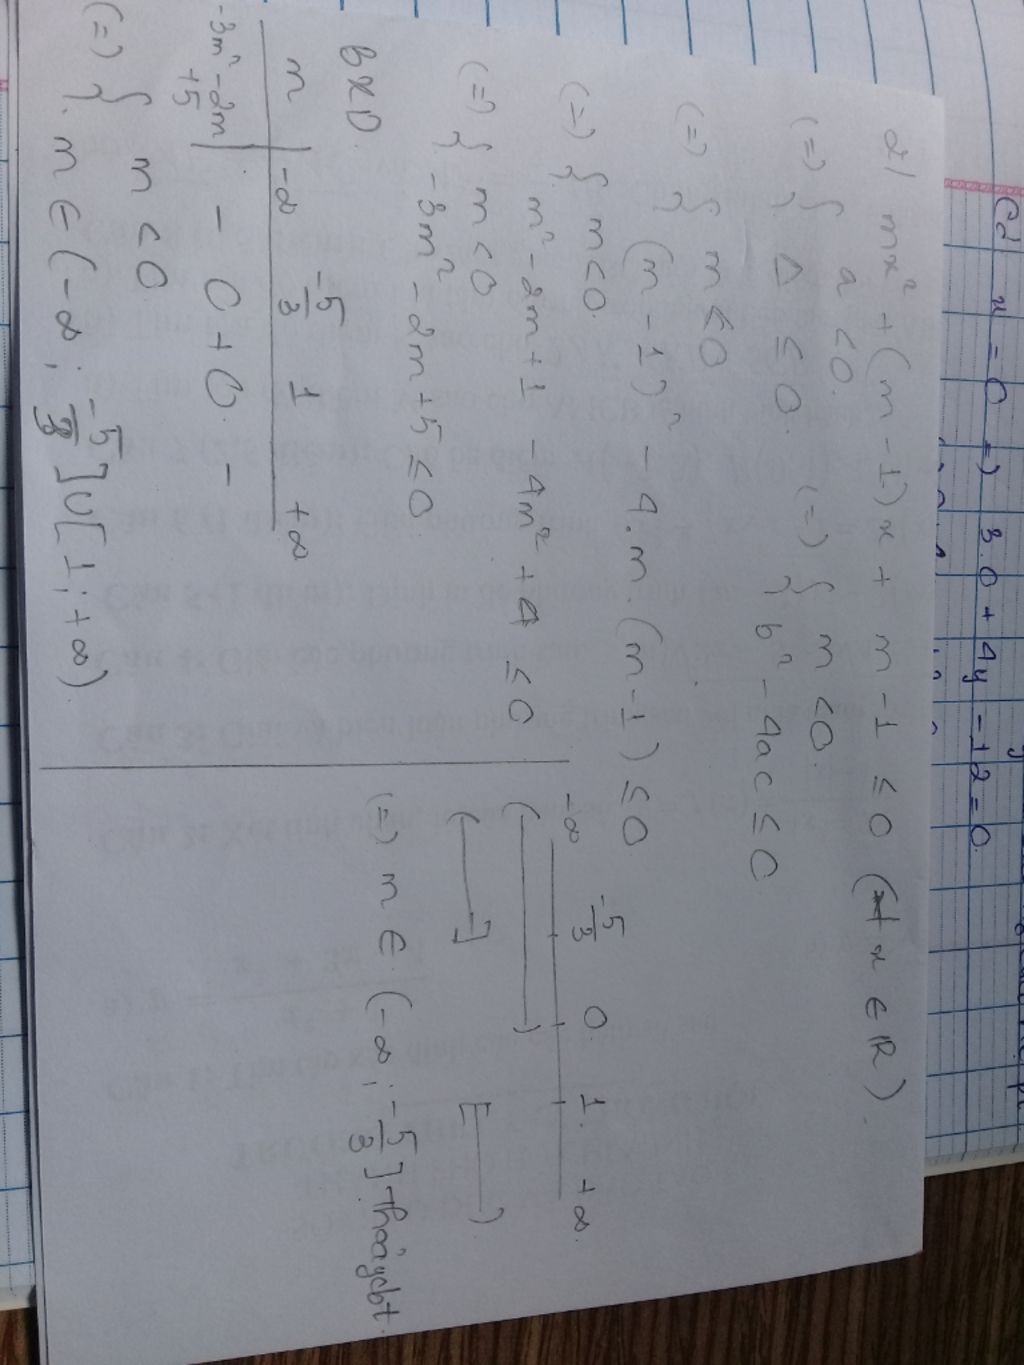 Cd x = 0 => 3.0 + 4y - 12 = 0.
2/ mx² + (m - 1)x + m - 1 ≤ 0 (∀x ∈ ℝ).
(=) { a < 0. Δ ≤ 0. (=) { m < 0. b² - 4ac ≤ 0
(=) { m ≤ 0 (m - 1)² - 4.m.(m - 1) ≤ 0
(=) { m < 0. m² - 2m + 1 - 4m² + 4 ≤ 0
(=) { m < 0 -3m² - 2m + 5 ≤ 0.
BXD
m | -∞ -5/3 1 +∞
-3m² - 2m + 5 | - 0 + 0 -
(=) { m < 0 m ∈ (-∞; -5/3] ∪ [1; +∞)
-∞ -5/3 0. 1. +∞.
( )
( ] [ )
(=) m ∈ (-∞; -5/3] thoả ycbt.